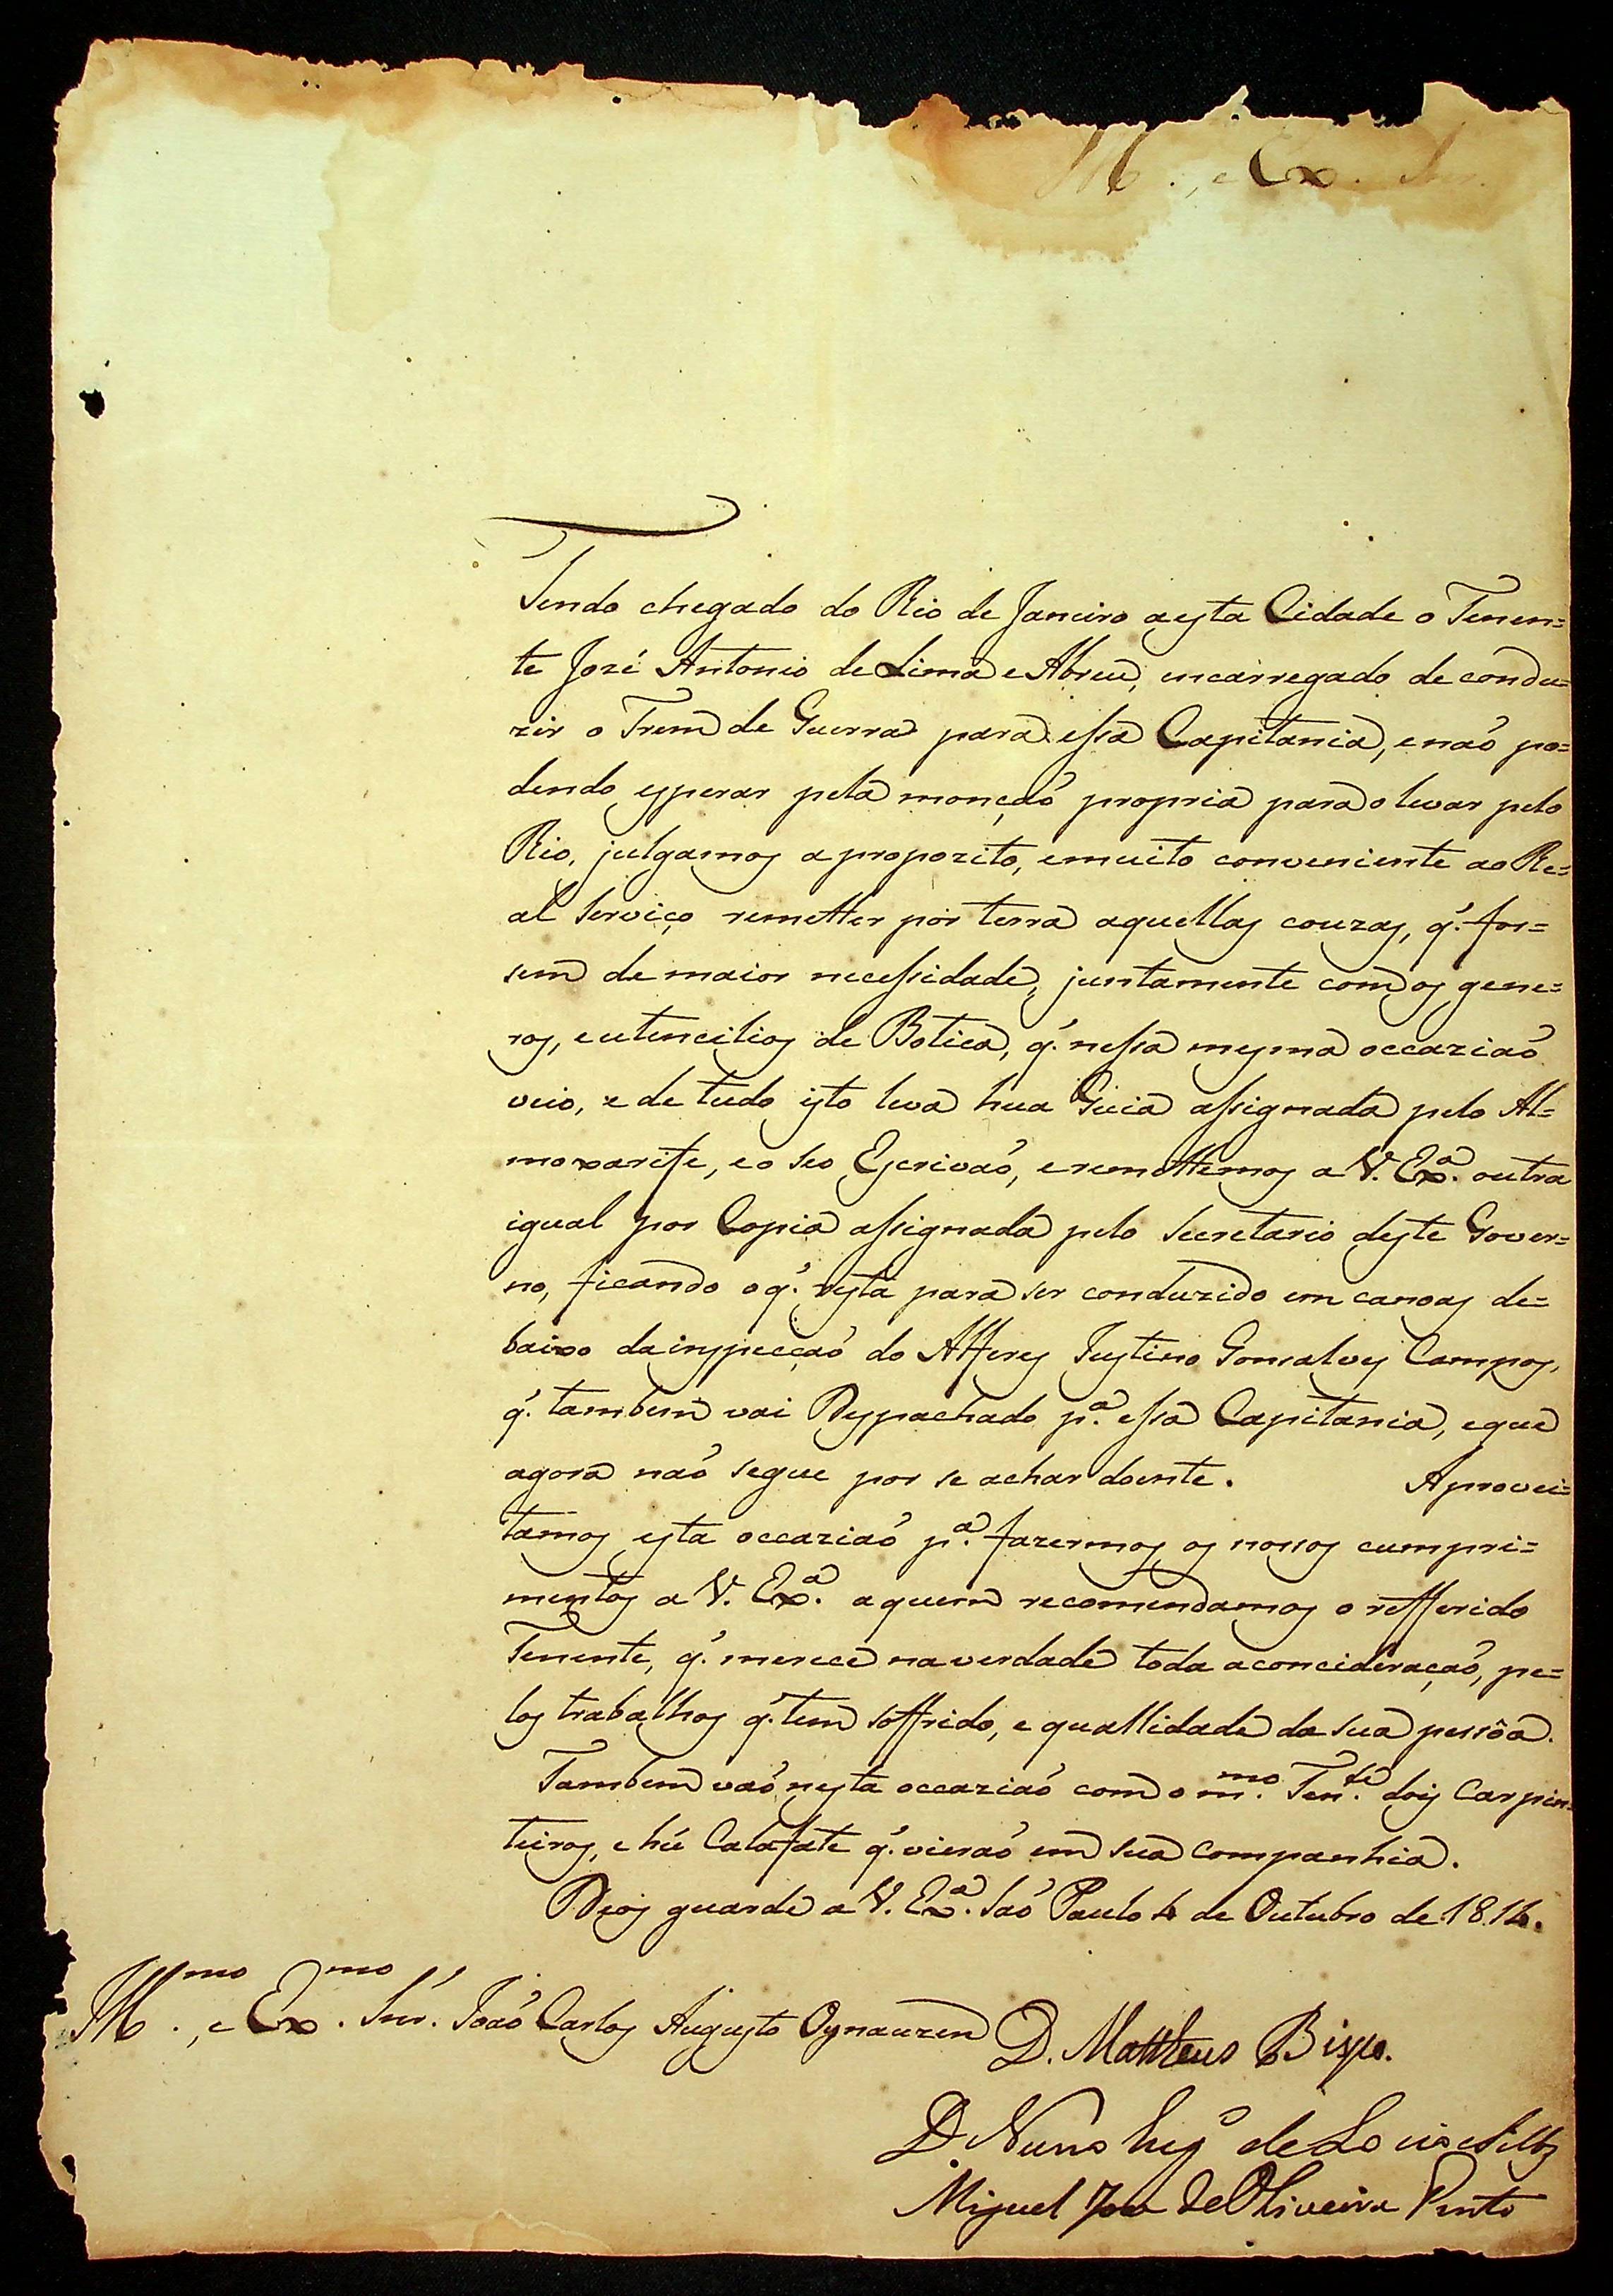 Ill. , e Ex. Snr.
Tendo chegado do Rio de Janeiro a esta Cidade o Tenen=
te Jozé Antonio de Lima e Abreu, encarregado de condu=
zir o Trem de Guerra para essa Capitania, e naõ po=
dendo esperar pela monçaõ propria para o levar pelo
Rio, julgamos a propozito, e muito conveniente ao Re=
al Serviço remetter por terra aquellas couzas, q'. fos=
sem de maior necessidade, juntamente com os gene=
ros, e utencilios de Botica, q'. nessa mesma occaziaõ
veio, e de tudo isto leva hua Guia assignada pelo Al=
moxarife, e o seo Escrivaõ, e remettemos a V. Exa. outra
igual por Copia assignada pelo Secretario deste Gover=
no, ficando o q'. resta para ser conduzido em canoas de=
baixo da inspecçaõ do Alferes Justino Gonsalves Campos,
q'. tambem vai Despachado pa. essa Capitania, e que
agora naõ segue por se achar doente. Aprovei=
tamos esta occaziaõ pa. fazermos os nossos cumpri=
mentos a V. Exa. a quem recomendamos o refferido
Tenente, q'. merece na verdade toda a concideraçaõ, pe=
los trabalhos q'. tem soffrido, e quallidade da sua pessôa.
Tambem vaõ nesta occaziaõ com o mmo. Tente. dois Carpin=
teiros, e hũ Calafate q'. vieraõ em sua companhia.
Deos guarde a V. Exa. Saõ Paulo 4 de Outubro de 1814.
Illmo. , e Exmo. Snr. Joaõ Carlos Augusto Oynauzen
D. Mattheus Bispo.
D Nuno Eugo de Locio e Seilbz
Miguel Joze de Oliveira Pinto